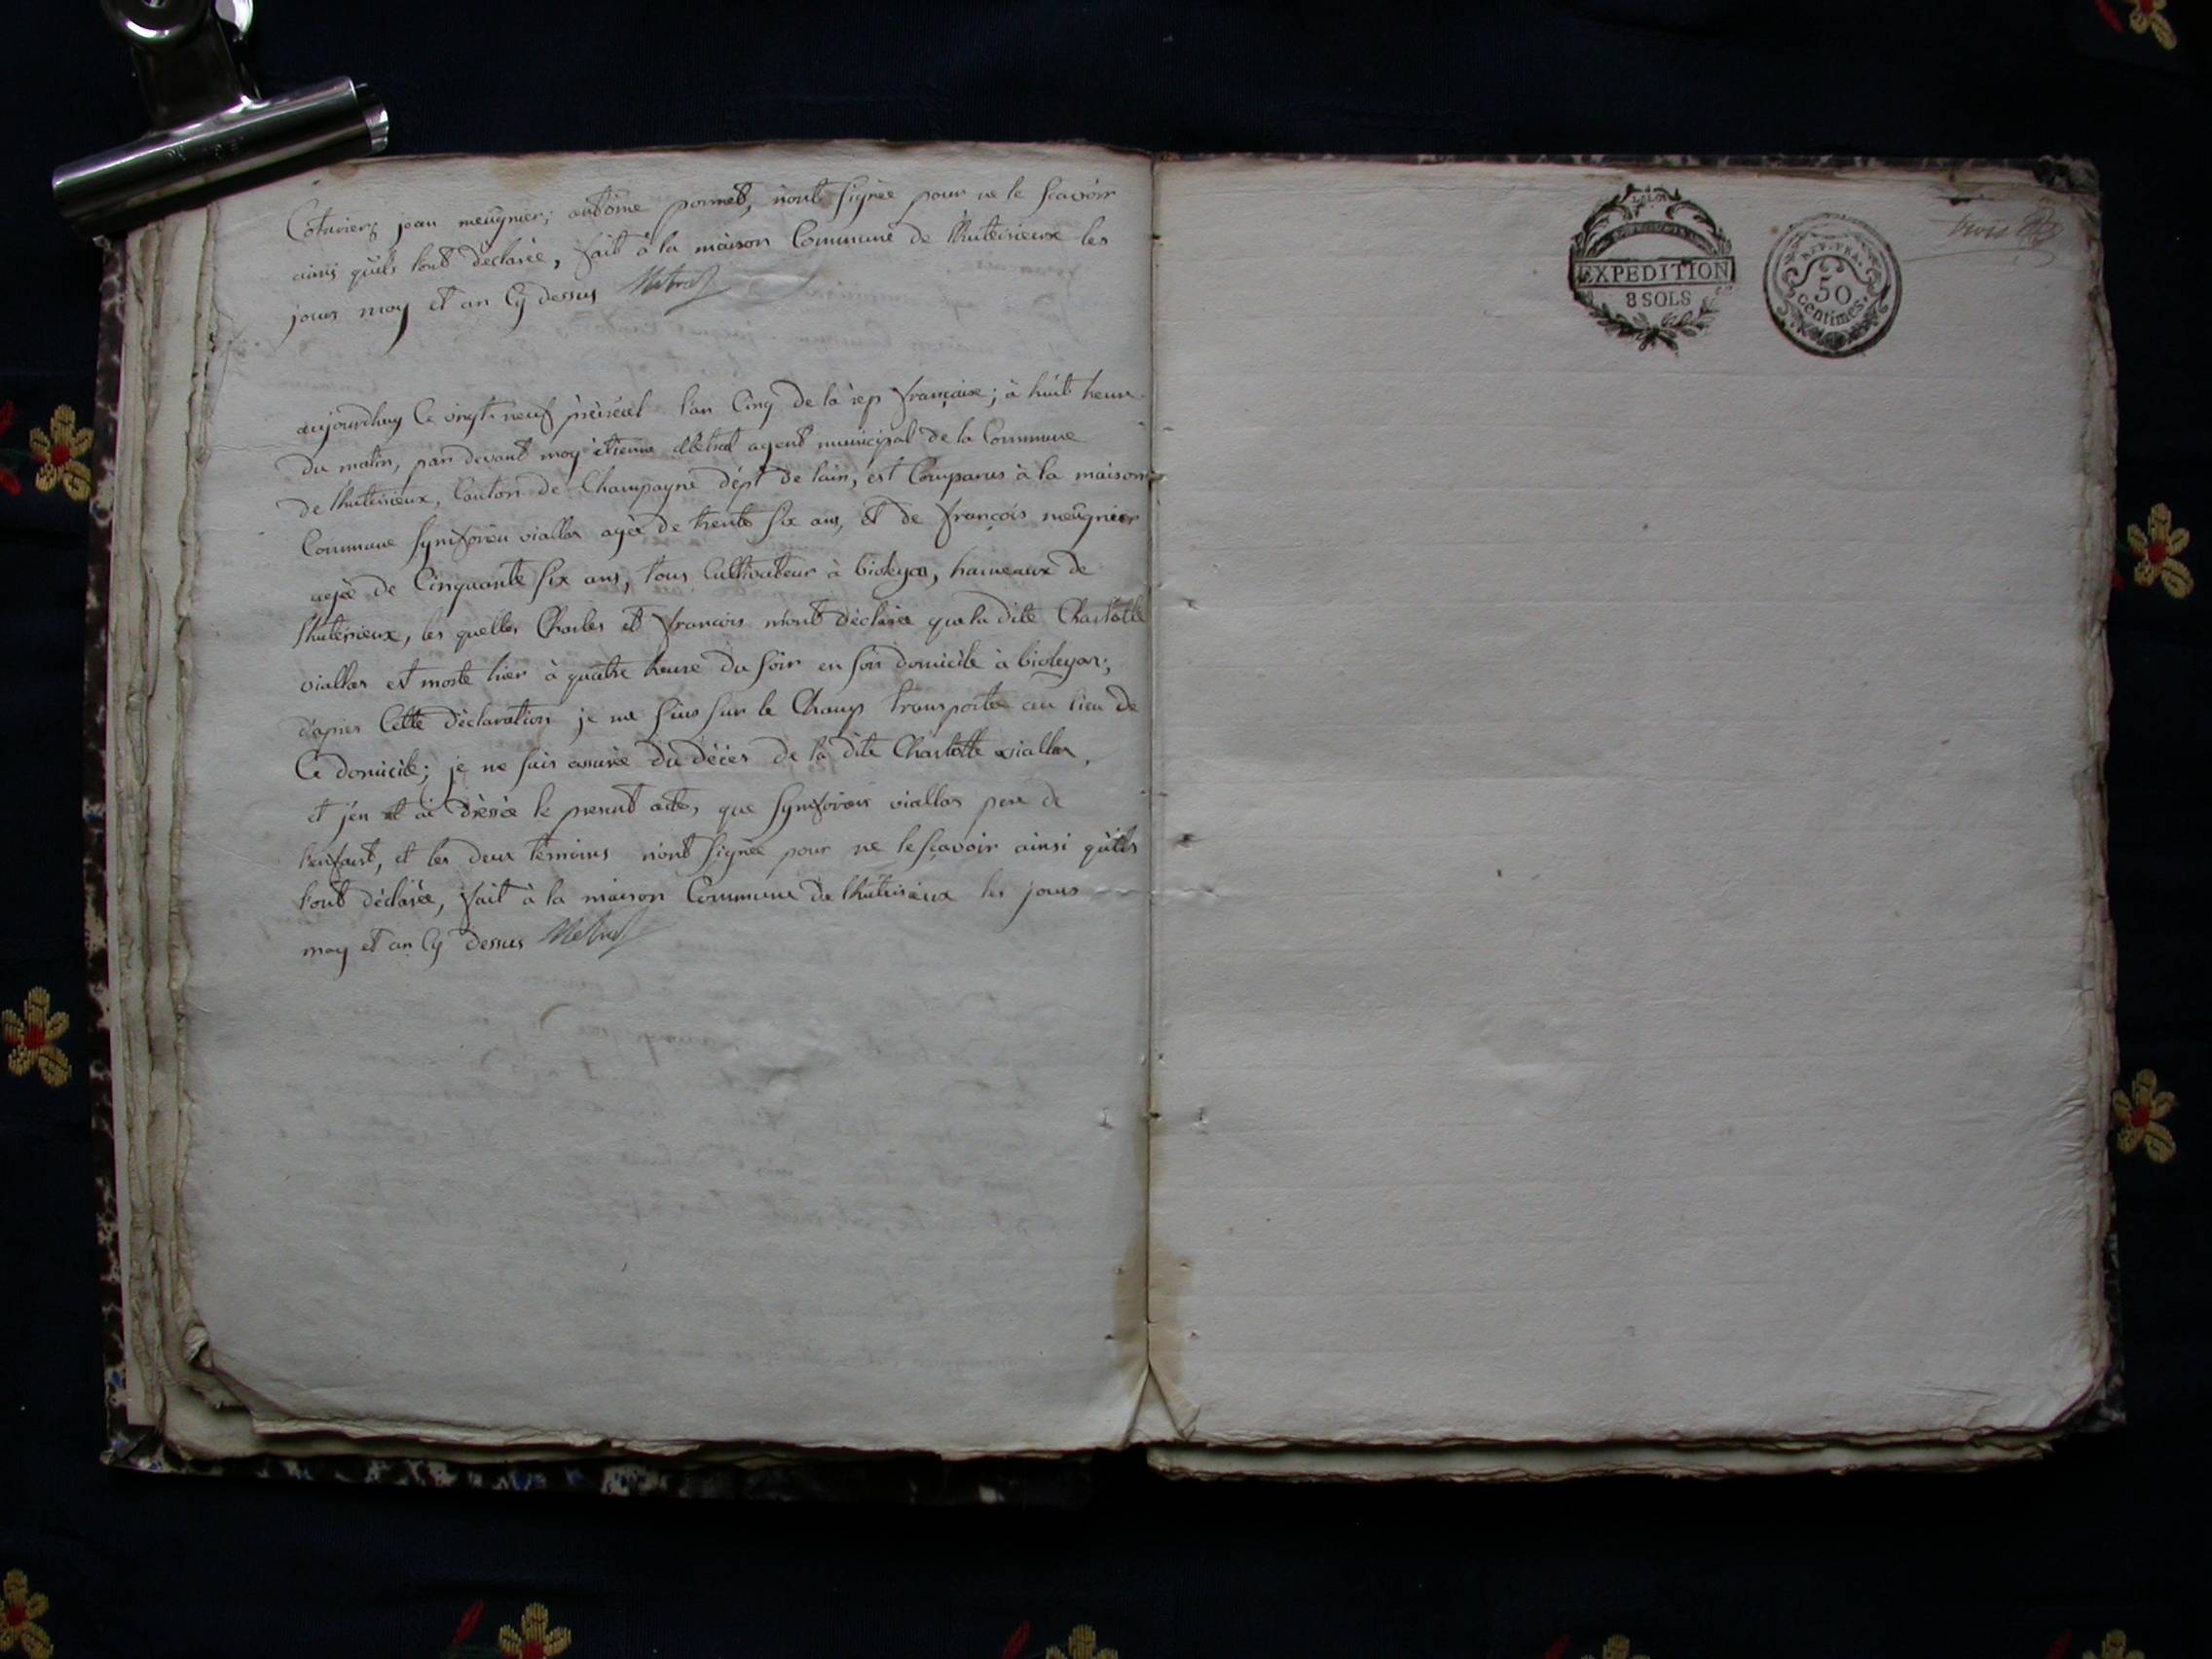 Cotaviers jean meûgnier; antoine pomet, n'ont signée pour ne le sçavoir
ainsi quils l'ont déclarée, fait à la maison Commune de lhuteirieux les
jours moy et an Cy dessus Metral
aujourdhuy Ce vingt neuf prèiréal l'an Cinq de la rép française; à huit heure
Du matin, par devant moy étienne Metral agent municipal de la Commune
De lhuteirieux, Canton de Champagne dépt de lain, est Comparus à la maison
Commune Symforien viallas agée de trente six ans, et de françois meûgnier
agée de Cinquante six ans, tous Cultivateur à bioleyas, hameaux de
lhuteirieux, les quelles Charles et francois m'ont déclarée que la dite Charlotte
viallas est morte hier à quatre heure du soir en son domicile à bioleyas;
d'après Cette déclaration je me suis sur le Champ transportée au lieu de
Ce domicile; je me suis assurée du décès de la dite Charlotte viallas,
et j'en ai dressée le present acte, que Symforien viallas pere de
l'enfant, et les deux temoins n'ont signée pour ne le sçavoir ainsi qu'ils
l'ont déclarée, fait à la maison Commune de lhuteirieux les jours
moy et an Cy dessus Metral
LA LOI
EXPEDITION
8 SOLS
REP. FRA.
50
centimes.
trois